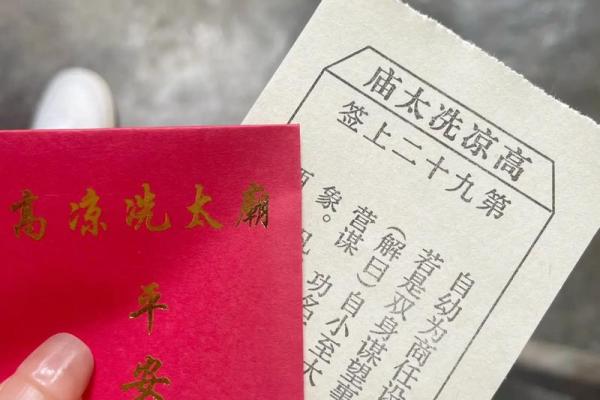 高凉冼太廟
平安
高凉冼太庙
第九十二上签
自幼为商任设
若是双身谋望事
（解曰）自小至大
营谋 功名
象。